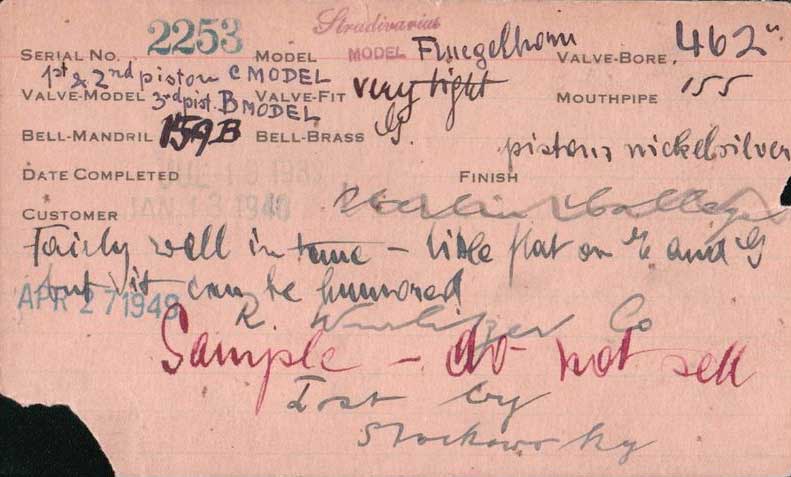 Stradivarius
SERIAL NO. 2253 MODEL MODEL Fluegelhorn VALVE-BORE 462"
1st & 2nd piston C MODEL
VALVE-MODEL 3rd pist. B MODEL VALVE-FIT very tight MOUTHPIPE 155
BELL-MANDRIL 159B BELL-BRASS G.
pistons nickelsilver
DATE COMPLETED FINISH
JAN 13 1948
CUSTOMER
Fairly well in tune - little flat on and G
but it can be humored
APR 27 1948
R. Wurlitzer Co
Sample - do not sell
Lost by